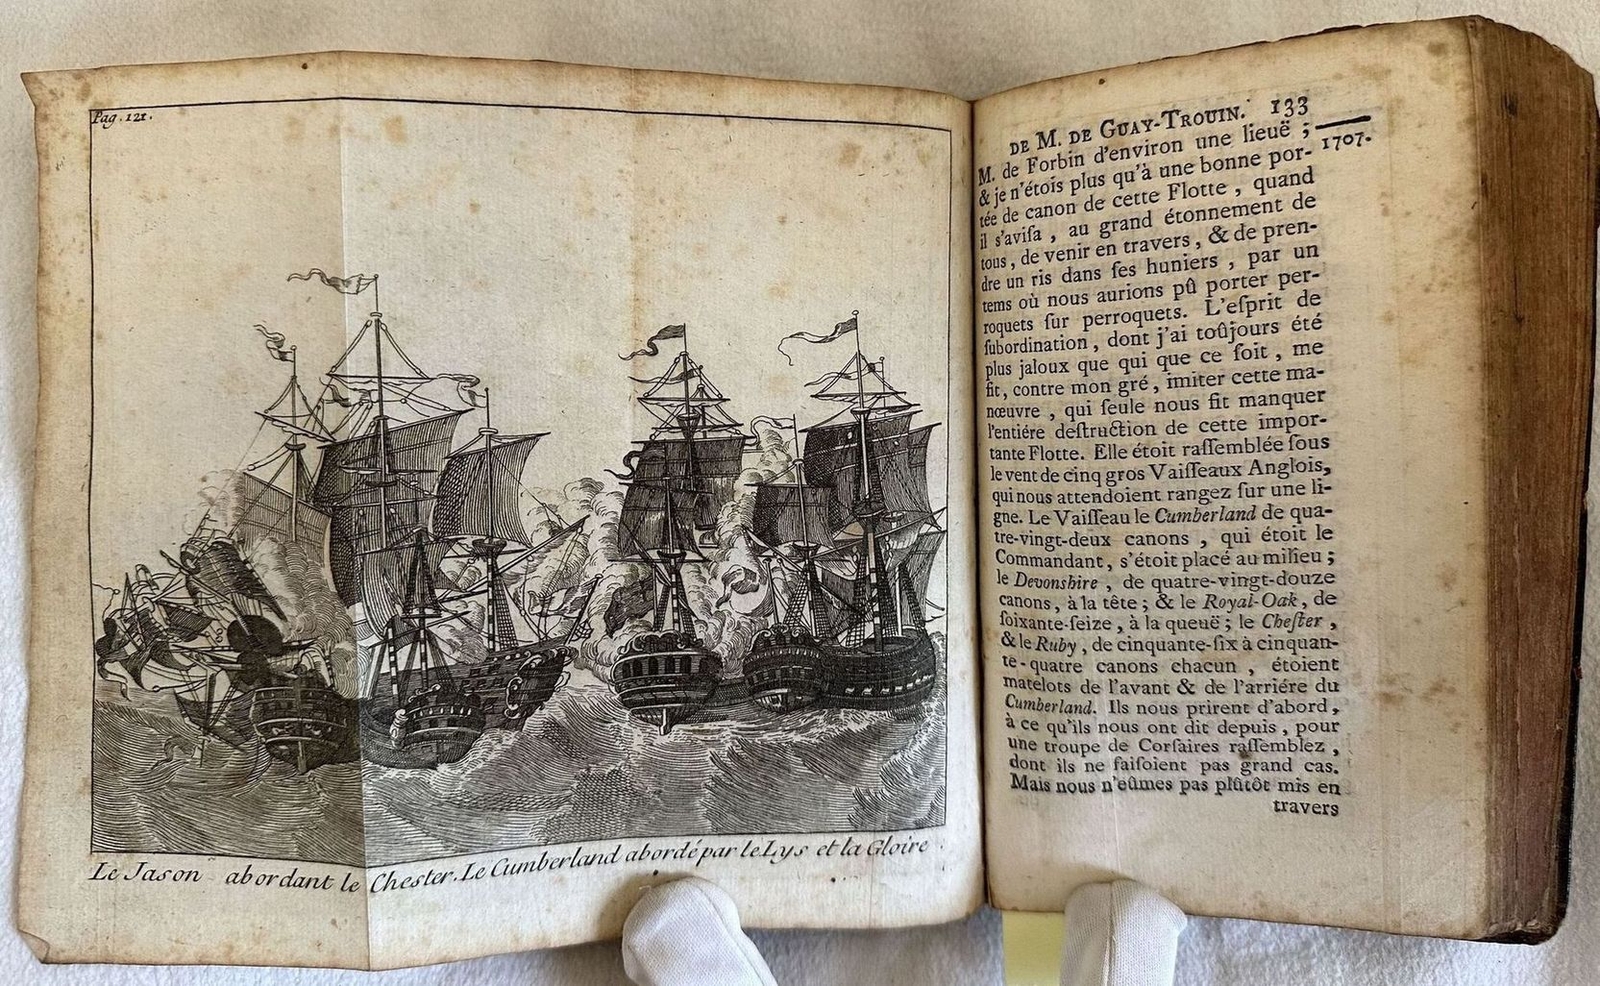 Pag. 121.
Le Jason abordant le Chester. Le Cumberland abordé par le Lys et la Gloire.
DE M. DE GUAY-TROUIN. 133
1707.
M. de Forbin d'environ une lieuë ;
& je n'étois plus qu'à une bonne por-
tée de canon de cette Flotte , quand
il s'aviſa , au grand étonnement de
tous , de venir en travers , & de pren-
dre un ris dans ſes huniers , par un
tems où nous aurions pû porter per-
roquets ſur perroquets. L'eſprit de
ſubordination , dont j'ai toûjours été
plus jaloux que qui que ce ſoit , me
fit, contre mon gré , imiter cette ma-
nœuvre , qui ſeule nous fit manquer
l'entiére deſtruction de cette impor-
tante Flotte. Elle étoit raſſemblée ſous
le vent de cinq gros Vaiſſeaux Anglois,
qui nous attendoient rangez ſur une li-
gne. Le Vaiſſeau le Cumberland de qua-
tre-vingt-deux canons , qui étoit le
Commandant, s'étoit placé au milieu ;
le Devonshire , de quatre-vingt-douze
canons, à la tête ; & le Royal-Oak , de
ſoixante-ſeize , à la queuë ; le Cheſter ,
& le Ruby , de cinquante-ſix à cinquan-
te-quatre canons chacun , étoient
matelots de l'avant & de l'arriére du
Cumberland. Ils nous prirent d'abord ,
à ce qu'ils nous ont dit depuis , pour
une troupe de Corſaires raſſemblez ,
dont ils ne faiſoient pas grand cas.
Mais nous n'eûmes pas plûtôt mis en
travers